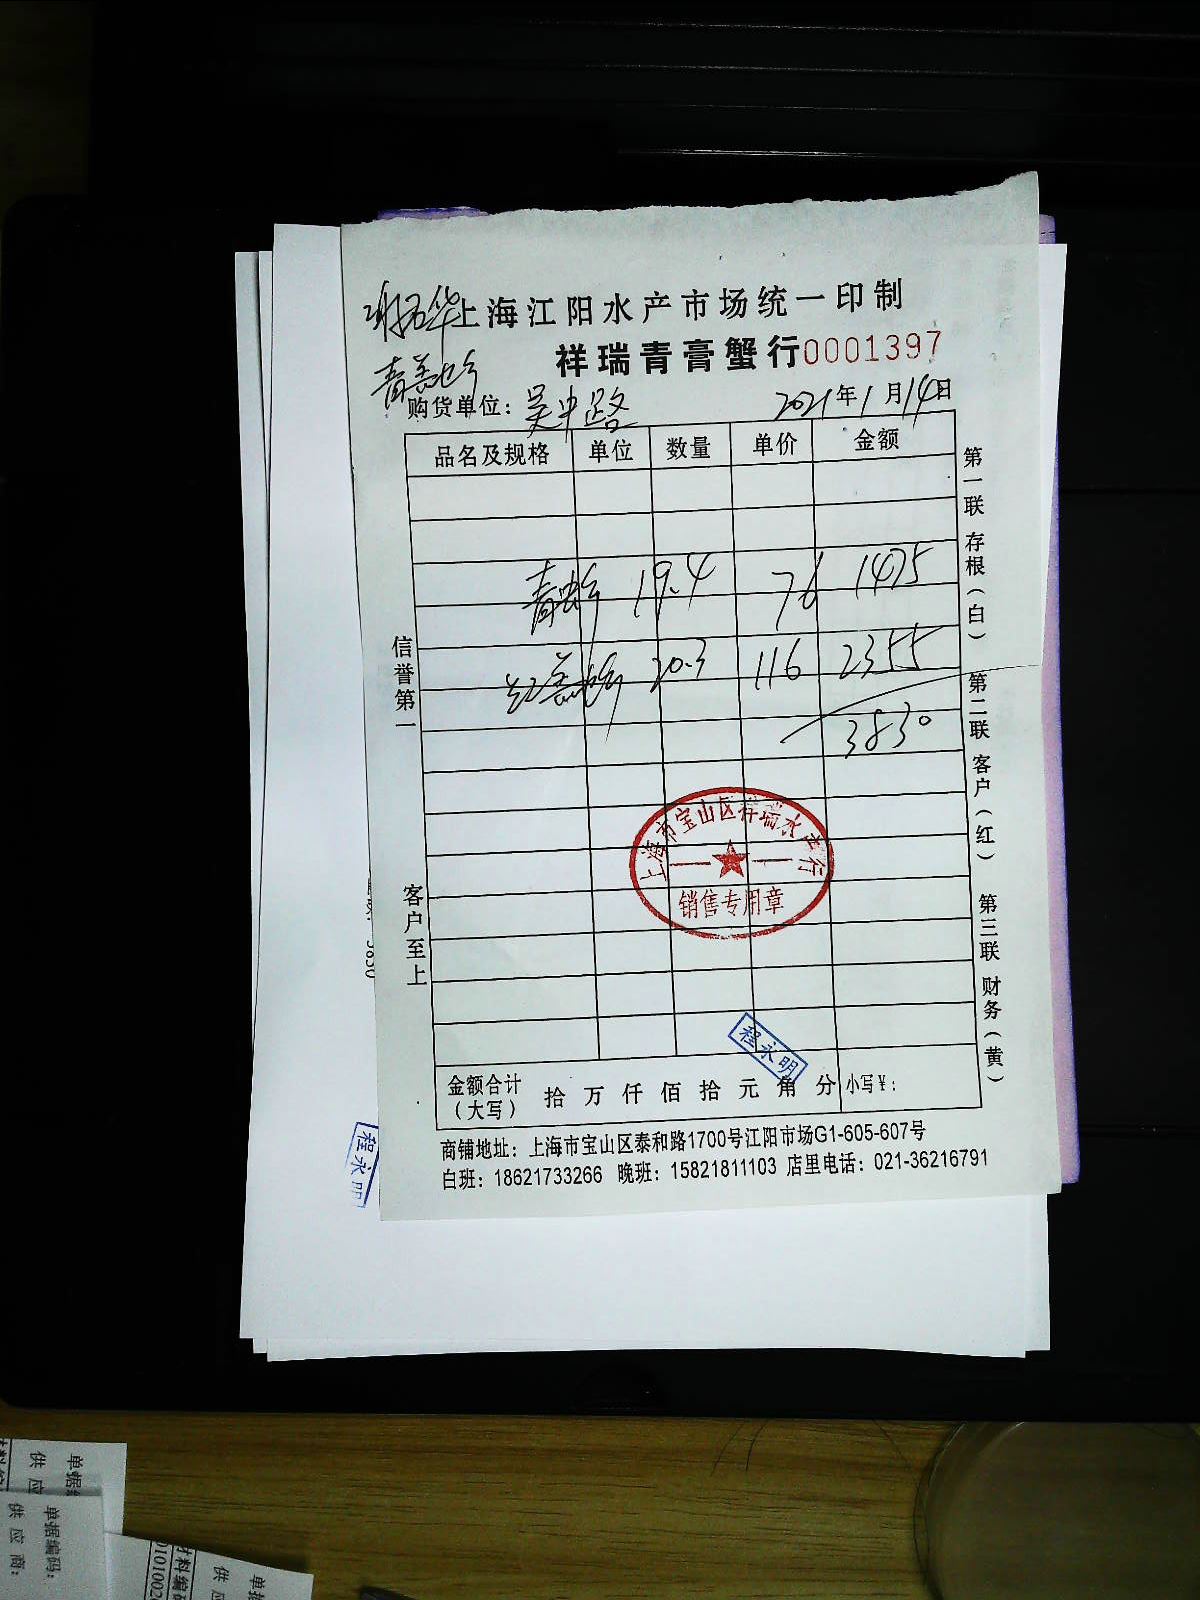 上海江阳水产市场统一印制
祥瑞青膏蟹行0001397
购货单位：吴中路 2021年1月14日
品名及规格 单位 数量 单价 金额
19.4 76 1475
20.3 116 2355
3830
信誉第一
客户至上
第一联 存根（白） 第二联 客户（红） 第三联 财务（黄）
上海市宝山区祥瑞水产行
销售专用章
程永明
金额合计（大写） 拾 万 仟 佰 拾 元 角 分 小写￥：
商铺地址：上海市宝山区泰和路1700号江阳市场G1-605-607号
白班：18621733266 晚班：15821811103 店里电话：021-36216791
程永明
3830
单据编码：
供应商：
材料编码
供应
单据